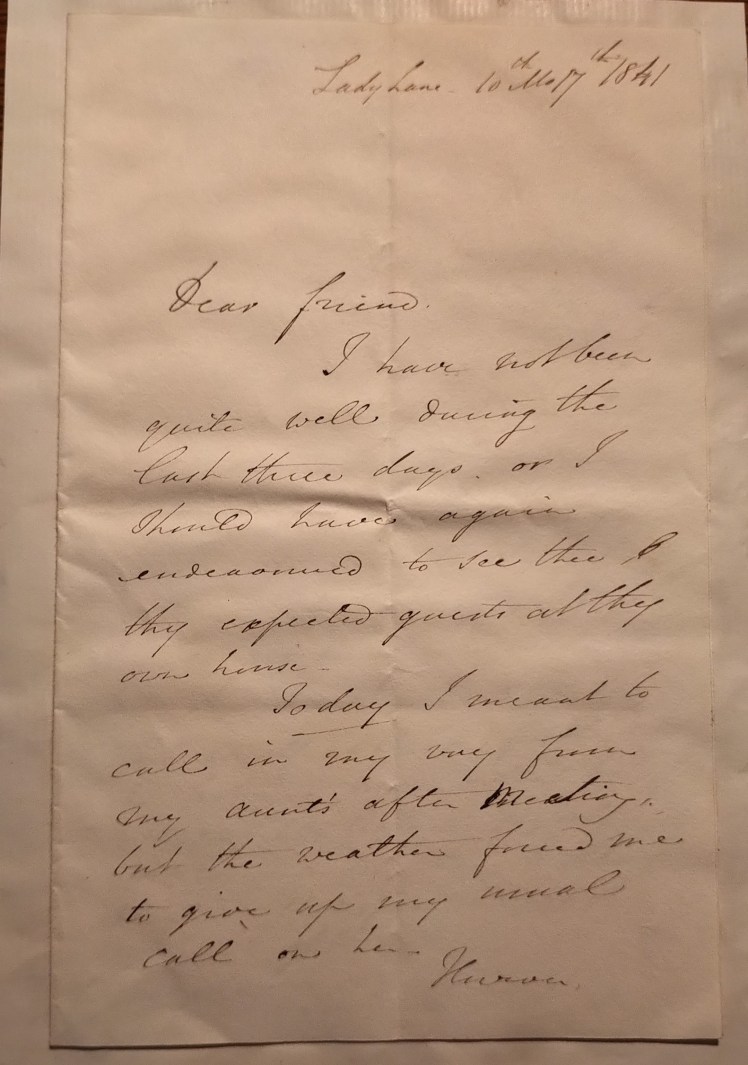 Lady Lane. 10th Mo 17th 1841
Dear friend.
I have not been
quite well during the
last three days. or I
should have again
endeavoured to see thee &
thy expected guests at thy
own house -
Today I meant to
call in my way from
my aunt's after Meeting,
but the weather forced me
to give up my usual
call on her -